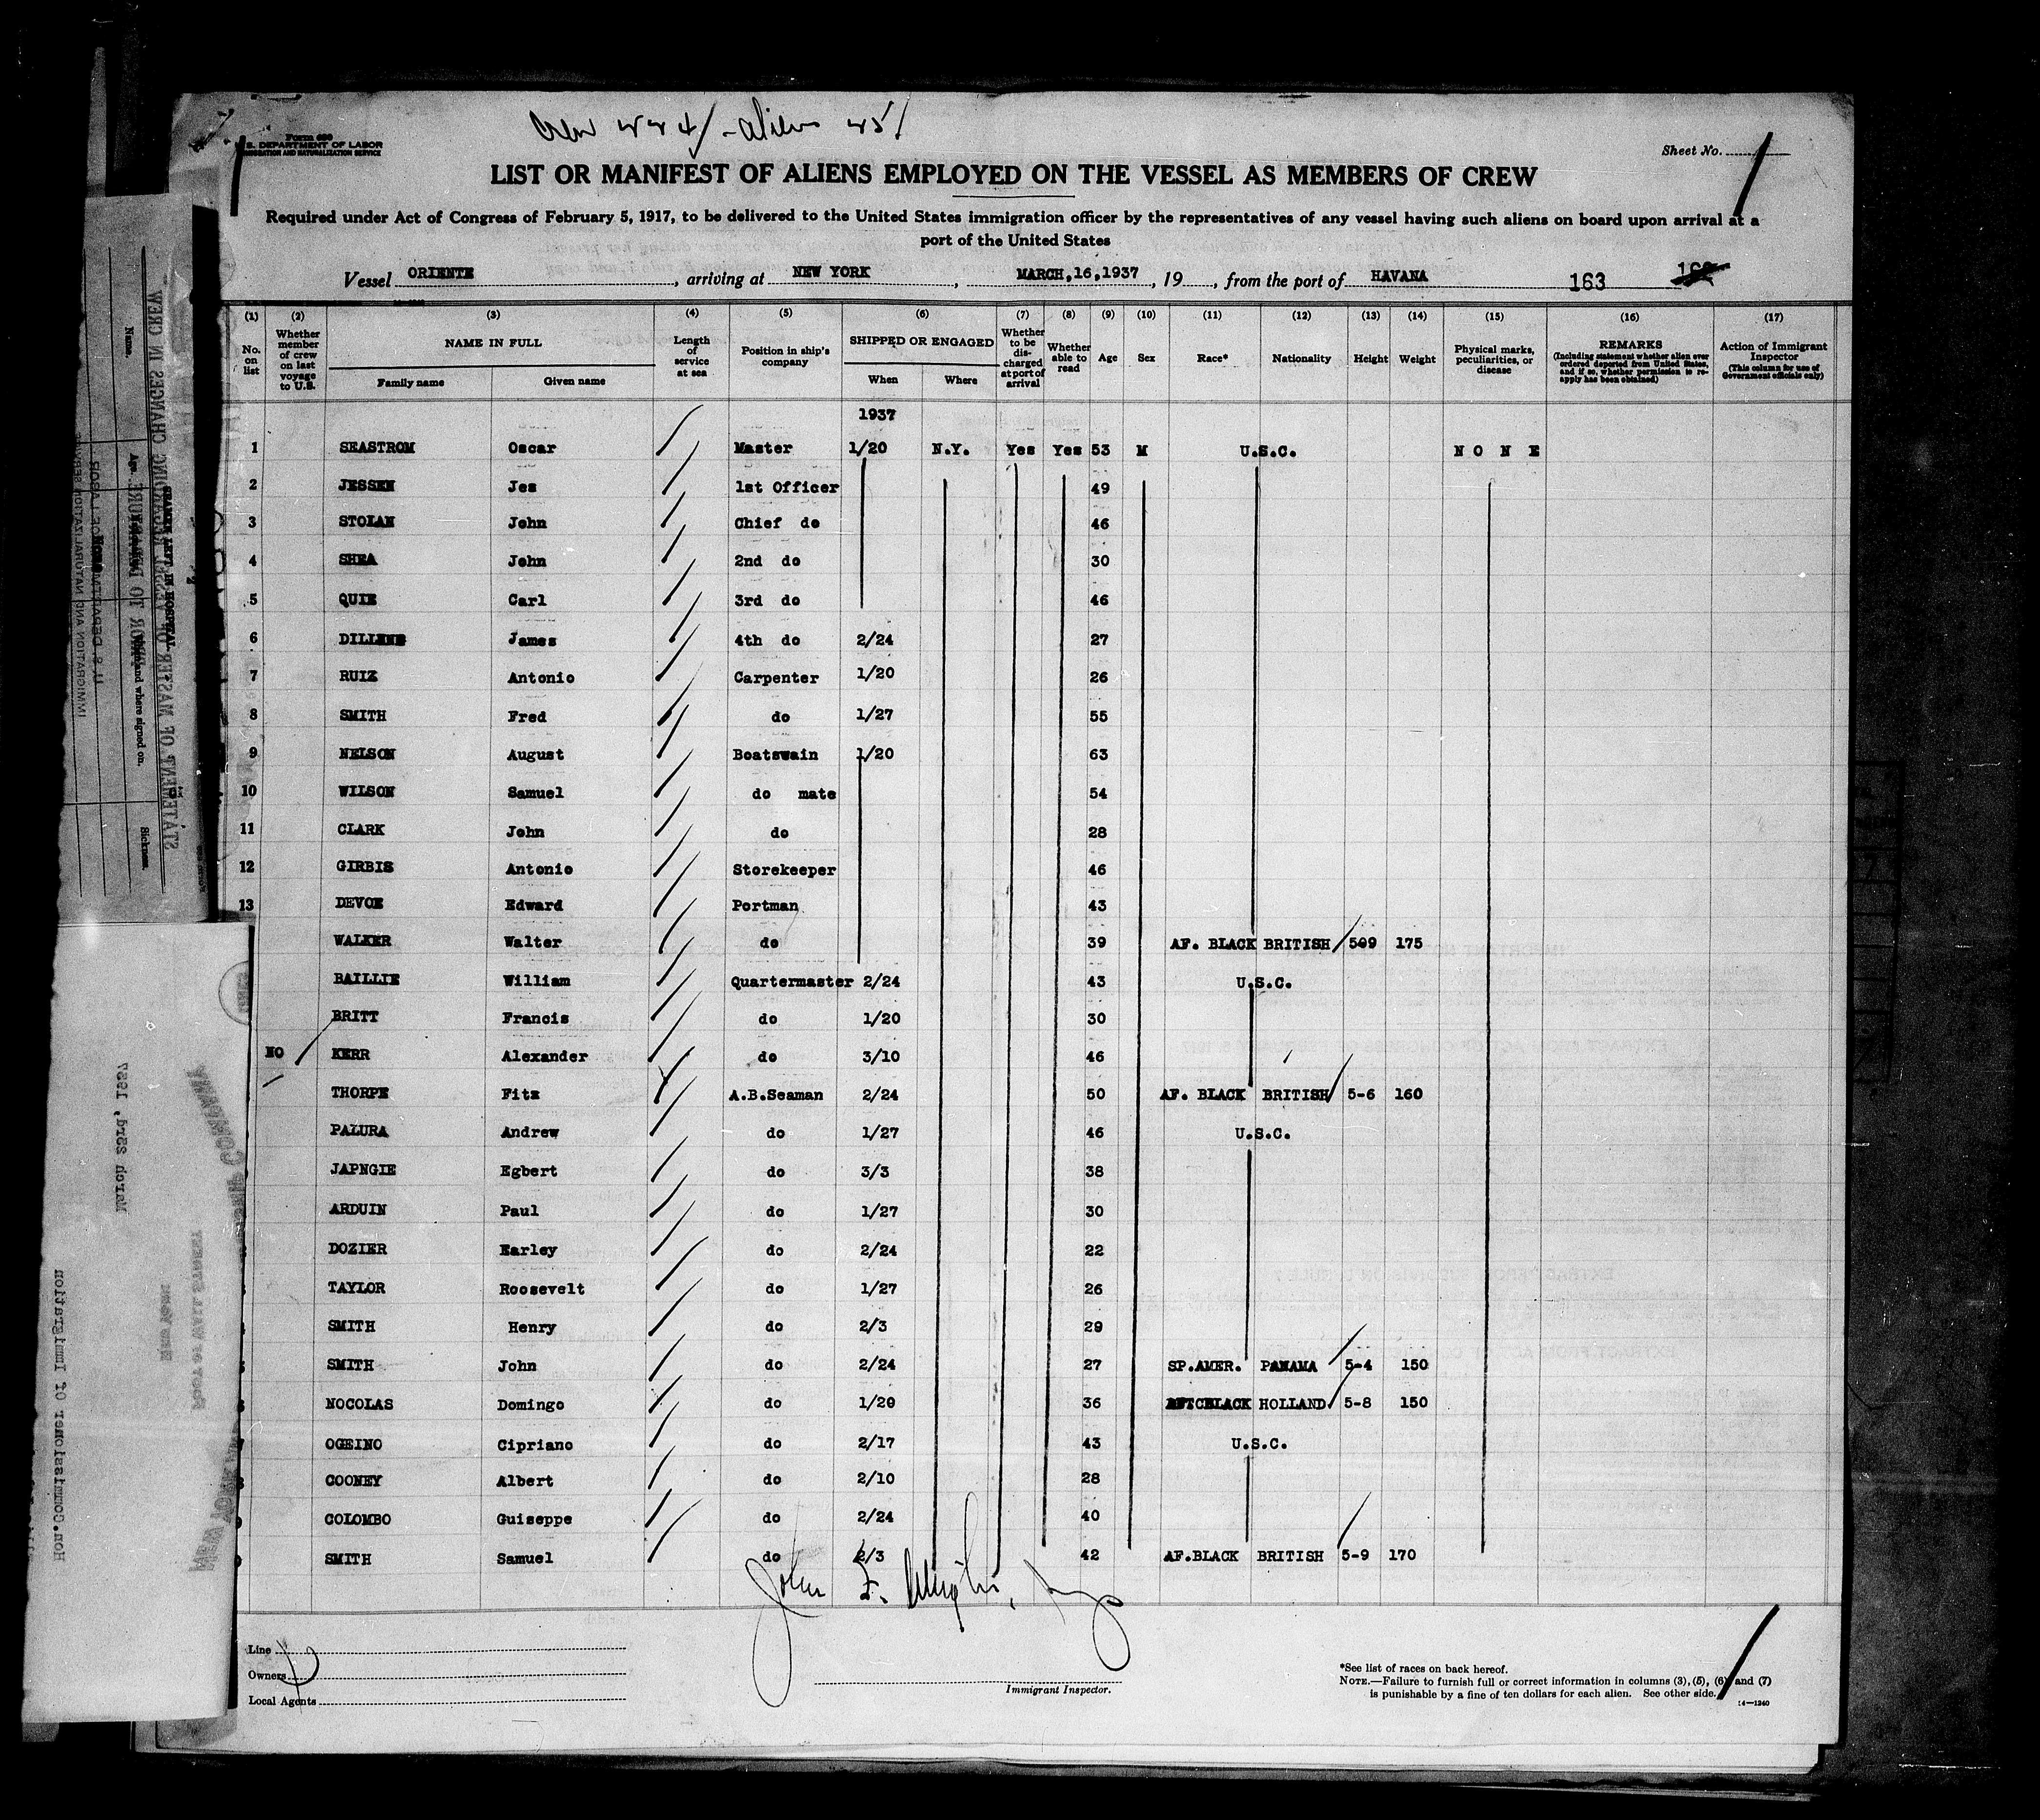 Crew 224 - aliens 25
Form 680
U.S. DEPARTMENT OF LABOR
IMMIGRATION AND NATURALIZATION SERVICE
Sheet No. 1
LIST OR MANIFEST OF ALIENS EMPLOYED ON THE VESSEL AS MEMBERS OF CREW
Required under Act of Congress of February 5, 1917, to be delivered to the United States immigration officer by the representatives of any vessel having such aliens on board upon arrival at a
port of the United States
Vessel ORIENTE, arriving at NEW YORK, MARCH,16,1937, 19, from the port of HAVANA 163
(1) (2) (3) (4) (5) (6) (7) (8) (9) (10) (11) (12) (13) (14) (15) (16) (17)
No. on list
Whether member of crew on last voyage to U.S.
NAME IN FULL
Family name Given name
Length of service at sea
Position in ship's company
SHIPPED OR ENGAGED
When Where
Whether to be discharged at port of arrival
Whether able to read
Age
Sex
Race*
Nationality
Height
Weight
Physical marks, peculiarities, or disease
REMARKS
(Including statement whether alien ever ordered deported from United States, and if so, whether permission to re-apply has been obtained)
Action of Immigrant Inspector
(This column for use of Government officials only)
1937
1 SEASTROM Oscar Master 1/20 N.Y. Yes Yes 53 M U.S.C. N O N E
2 JESSEN Jes 1st Officer 49
3 STOLAN John Chief do 46
4 SHEA John 2nd do 30
5 QUIE Carl 3rd do 46
6 DILLENS James 4th do 2/24 27
7 RUIZ Antonio Carpenter 1/20 26
8 SMITH Fred do 1/27 55
9 NELSON August Boatswain 1/20 63
10 WILSON Samuel do mate 54
11 CLARK John do 28
12 GIRBIS Antonio Storekeeper 46
13 DEVOE Edward Portman 43
WALKER Walter do 39 AF. BLACK BRITISH 509 175
BAILLIE William Quartermaster 2/24 43 U.S.C.
BRITT Francis do 1/20 30
NO KERR Alexander do 3/10 46
THORPE Fitz A.B.Seaman 2/24 50 AF. BLACK BRITISH 5-6 160
PALURA Andrew do 1/27 46 U.S.C.
JAPNGIE Egbert do 3/3 38
ARDUIN Paul do 1/27 30
DOZIER Earley do 2/24 22
TAYLOR Roosevelt do 1/27 26
SMITH Henry do 2/3 29
SMITH John do 2/24 27 SP.AMER. PANAMA 5-4 150
NOCOLAS Domingo do 1/20 36 BLACK HOLLAND 5-8 150
OGEINO Cipriano do 2/17 43 U.S.C.
COONEY Albert do 2/10 28
COLOMBO Guiseppe do 2/24 40
SMITH Samuel do 2/3 42 AF.BLACK BRITISH 5-9 170
Line
Owners
Local Agents
Immigrant Inspector.
*See list of races on back hereof.
NOTE.—Failure to furnish full or correct information in columns (3), (5), (6) and (7)
is punishable by a fine of ten dollars for each alien. See other side.
14—1240
STATEMENT OF MASTER OF VESSEL REGARDING CHANGES IN CREW
Name.
Age.
When and where signed on.
Sickness.
U. S. DEPARTMENT OF LABOR
IMMIGRATION AND NATURALIZATION SERVICE
March 23rd, 1937
FOOT OF WALL STREET
NEW YORK
Hon.Commissioner of Immigration